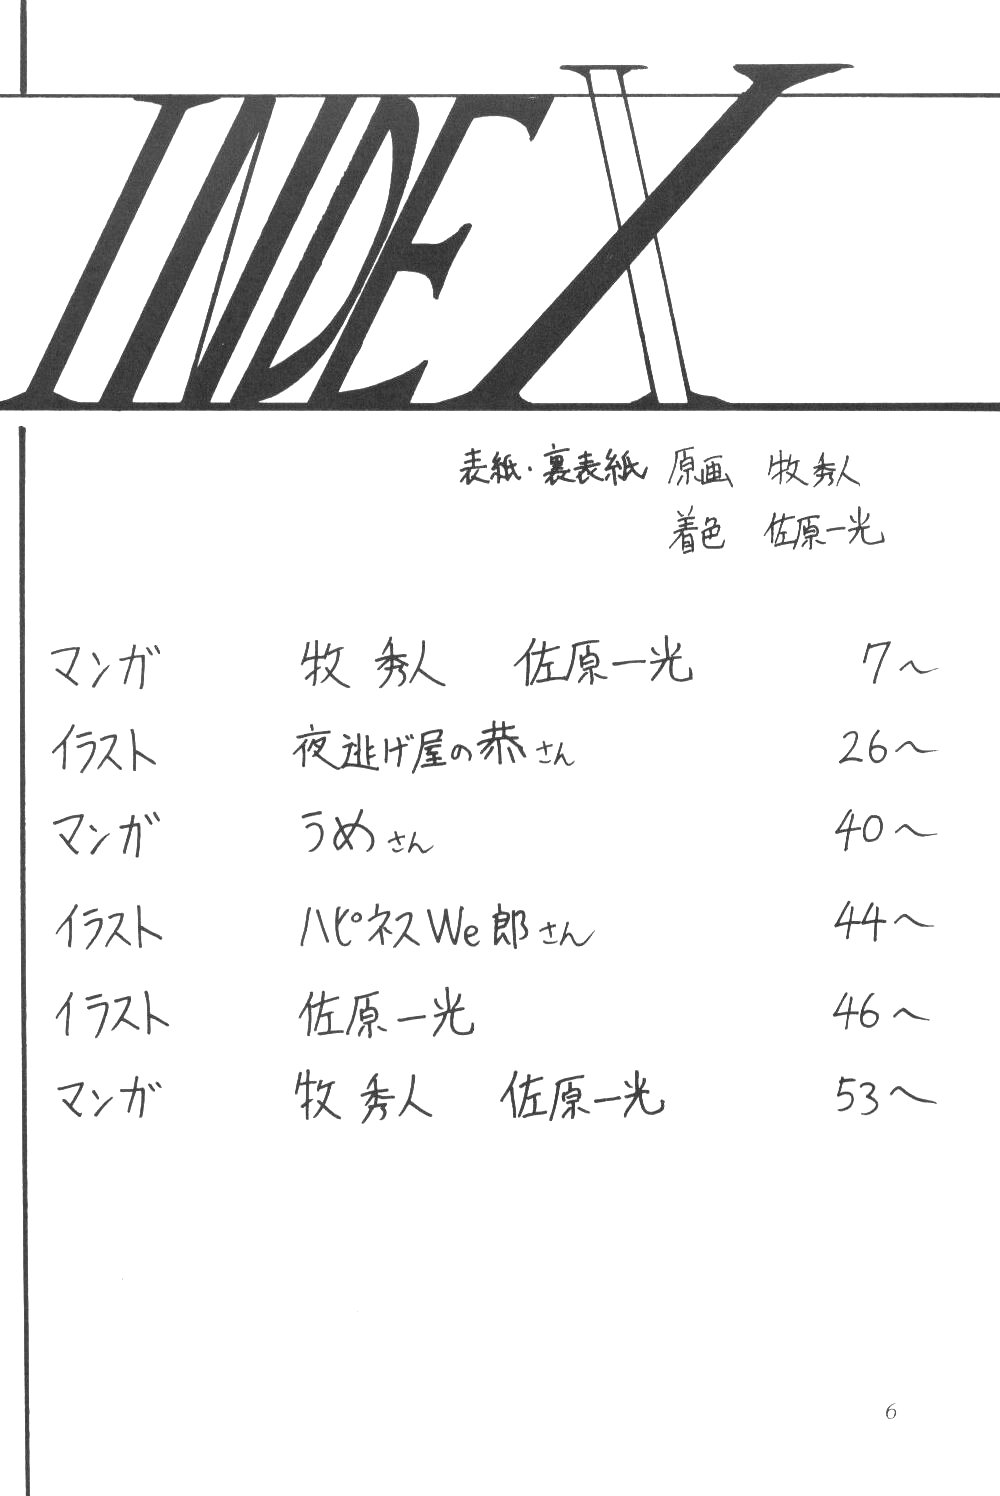 INDEX
表紙・裏表紙 原画 牧秀人
着色 佐原一光
マンガ 牧 秀人 佐原一光 7～
イラスト 夜逃げ屋の恭さん 26～
マンガ うめさん 40～
イラスト ハピネスWe郎さん 44～
イラスト 佐原一光 46～
マンガ 牧 秀人 佐原一光 53～
6